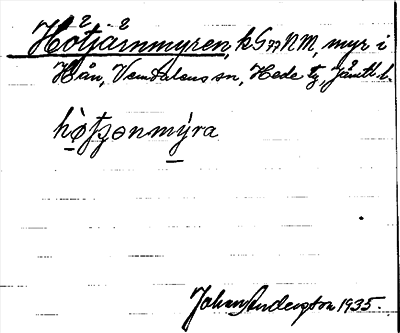 Hötjärnmyren, k G 77 NM, myr i
Hån, Vemdalens sn, Hede tg, Jämtl. l.
hø̀tʒənmýra
Johan Anderzton 1935.